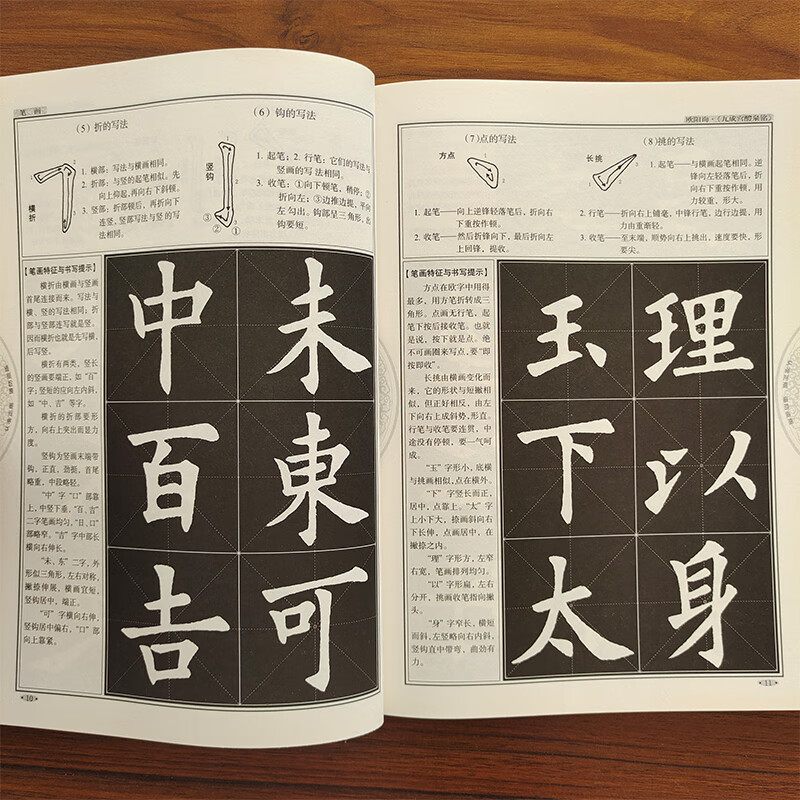 笔 画
(5) 折的写法
横折
1. 横部：写法与横画相同。
2. 折部：与竖的起笔相似。先
向上仰起,再向右下斜顿。
3. 竖部：折部顿后，再折向下
连竖，竖部写法与竖的写
法相同。
(6) 钩的写法
竖钩
1
2
③
②
①
1. 起笔；2. 行笔：它们的写法与
竖画的写法相同。
3. 收笔：①向下顿笔，稍停；②
折向左；③边推边提，平向
左勾出。钩部呈三角形，出
钩要短。
【笔画特征与书写提示】
横折由横画与竖画
首尾连接而来。写法与
横、竖的写法相同；折
部与竖部连写就是竖。
因而横折也就是先写横，
后写竖。
横折有两类，竖长
的竖画要端正，如“百”
字；竖短的应向左内斜，
如“中、吉”等字。
横折的折部要形
方，向右上突出而显力
度。
竖钩为竖画末端带
钩，正直，劲挺，首尾
略重，中段略轻。
“中”字“口”部靠
上，中竖下垂，“百、吉”
二字笔画均匀，“日、口”
部略窄。“吉”字中部长
横向右伸长。
“未、东”二字，外
形似三角形，左右对称，
撇捺伸展。横画宜短，
竖钩居中，端正。
“可”字横向右伸，
竖钩居中偏右，“口”部
向上靠紧。
中 未
百 東
吉 可
10
欧阳询·《九成宫醴泉铭》
(7)点的写法
方点
1. 起笔——向上逆锋轻落笔后，折向右
下重按作顿。
2. 收笔——然后折锋向下，最后折向左
上回锋，提收。
(8)挑的写法
长挑
1. 起笔——与横画起笔相同。逆
锋向左轻落笔后，折
向右下重按作顿，用
力较重，形大。
2. 行笔——折向右上铺毫，中锋行笔，边行边提，用
力由重渐轻。
3. 收笔——至末端，顺势向右上挑出，速度要快，形
要尖。
【笔画特征与书写提示】
方点在欧字中用得
最多，用方笔折转成三
角形。点画无行笔，起
笔下按后接收笔。也就
是说，按下就是点。绝
不可画圈来写点，要“即
按即收”。
长挑由横画变化而
来，它的形状与短撇相
似，但正好相反，由左
下向右上成斜势，形直。
行笔与收笔要连贯，中
途没有停顿，要一气呵
成。
“玉”字形小，底横
与挑画相似，点在横外。
“下”字竖长而正，
居中，点靠上。“太”字
上小下大，捺画斜向右
下长伸，点画居中，在
撇捺之内。
“理”字形方，左窄
右宽，笔画排列均匀。
“以”字形扁，左右
分开，挑画收笔指向撇
头。
“身”字窄长，横短
而斜，左竖略向右内斜，
竖钩直中带弯，曲劲有
力。
玉 理
下 以
太 身
11